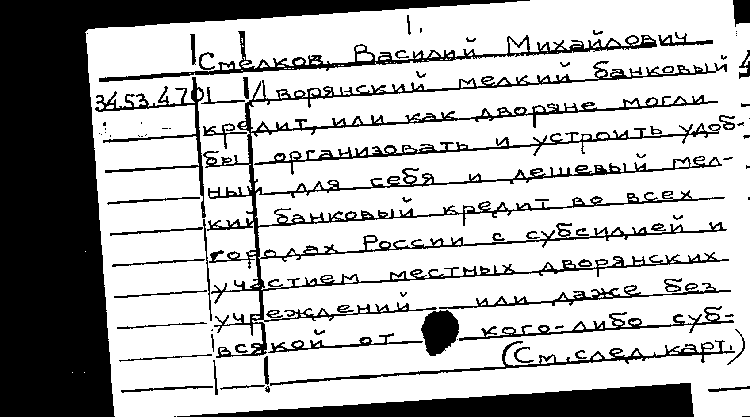 1.
Смелков, Василий Михайлович
34.53.4.701 Дворянский мелкий банковый
кредит, или как дворяне могли
бы организовать и устроить удоб-
ный для себя и дешевый мел-
кий банковый кредит во всех
городах России с субсидией и
участием местных дворянских
учреждений или даже без
всякой от кого-либо суб-
(См. след. карт.)